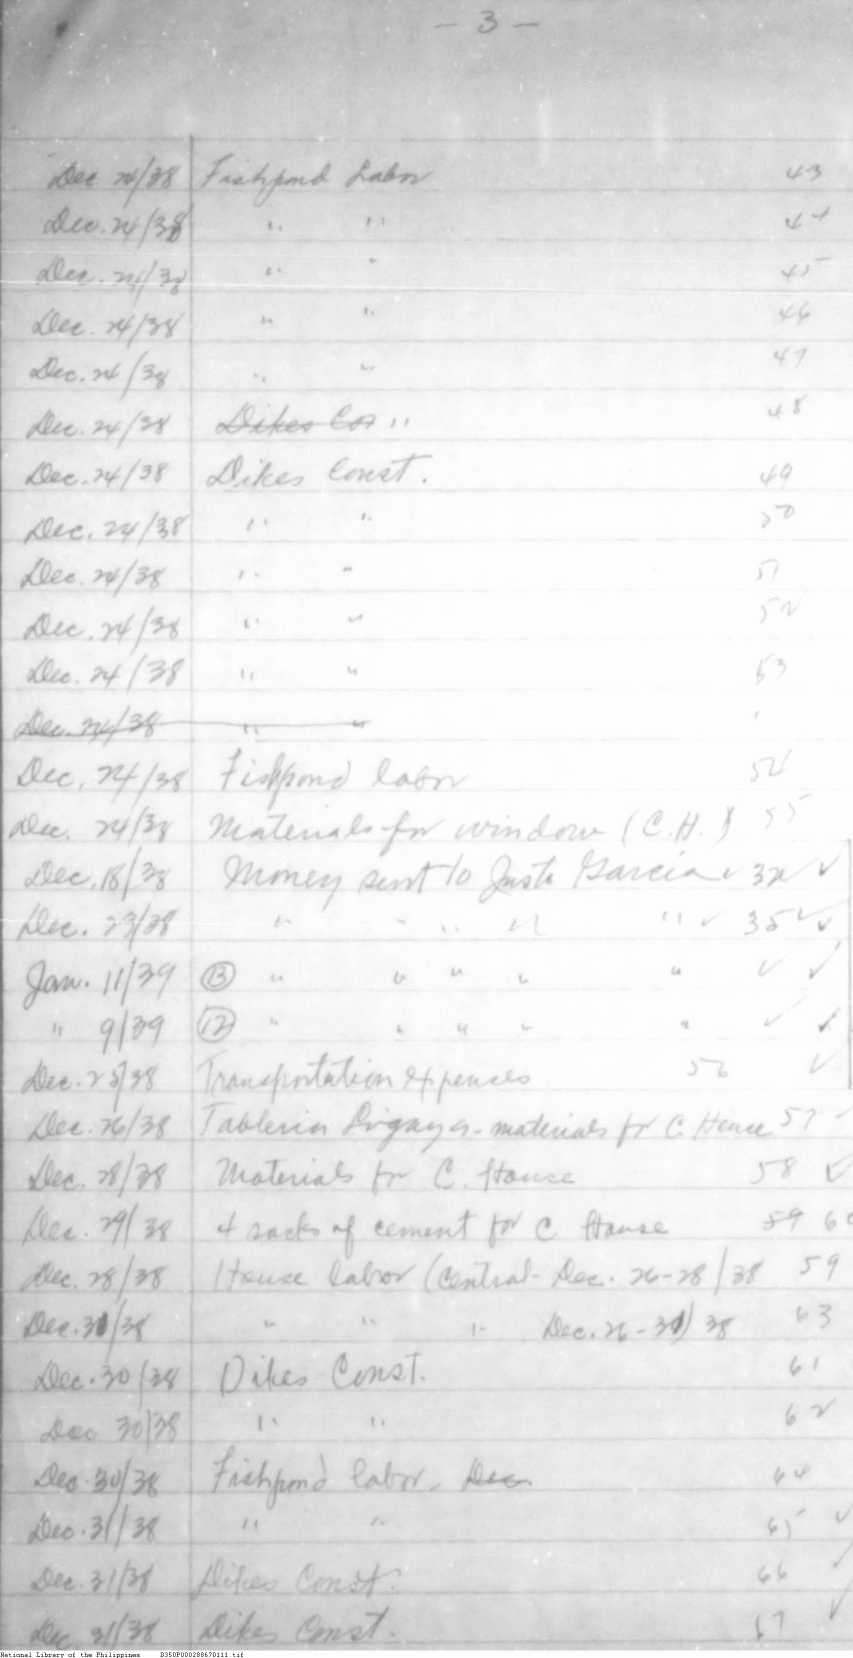 - 3 -
Dec 24/38 Fishpond Labor 43
Dec. 24/38 " " 44
Dec. 24/38 " " 45
Dec. 24/38 " " 46
Dec. 24/38 " " 47
Dec. 24/38 Dikes Con " 48
Dec. 24/38 Dikes Const. 49
Dec. 24/38 " " 50
Dec. 24/38 " " 51
Dec. 24/38 " " 52
Dec. 24/38 " " 53
Dec. 24/38 " "
Dec. 24/38 Fishpond labor 54
Dec. 24/38 Materials for window (C.H.) 55
Dec. 18/38 Money sent to Justo Garcia ✓ 32 ✓
Dec. 23/38 " " " " " ✓ 35 ✓ ✓
Jan. 11/39 (13) " " " " " ✓ ✓
" 9/39 (12) " " " " " ✓ ✓
Dec. 25/38 Transportation expenses 56 ✓
Dec. 26/38 Tableria Ligaya - materials for C. House 57 ✓
Dec. 28/38 Materials for C. House 58 ✓
Dec. 29/38 4 sacks of cement for C House 59 60
Dec. 28/38 House labor (Central - Dec. 26-28/38 59
Dec. 31/38 " " " Dec. 26-31/38 63
Dec. 30/38 Dikes Const. 61
Dec 30/38 " " 62
Dec. 30/38 Fishpond labor. Dec 64
Dec. 31/38 " " 65 ✓
Dec. 31/38 Dikes Const. 66 ✓
Dec. 31/38 Dikes Const. 67 ✓
National Library of the Philippines D350P000288670111.tif